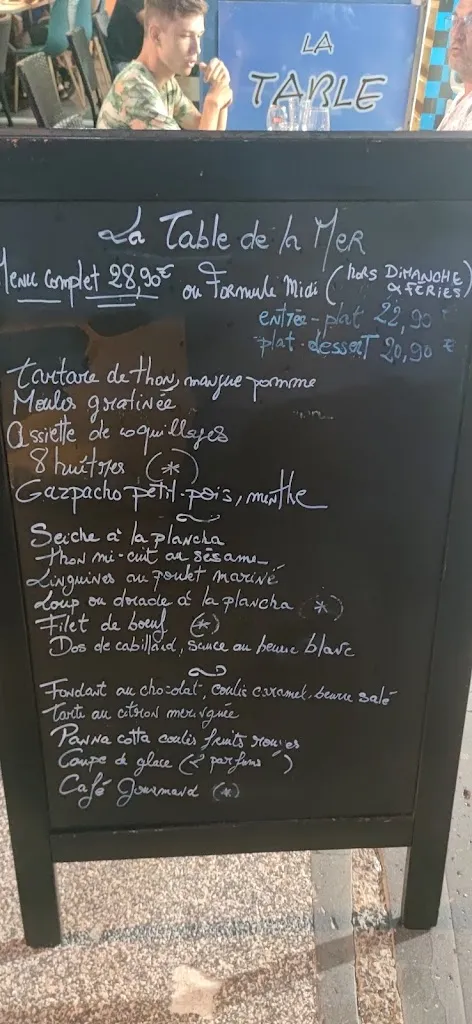 LA
TABLE
La Table de la MER
Menu complet 28,90€ ou Formule Midi (hors DIMANCHE
& FÉRIES)
entrée-plat 22,90 €
plat-dessert 20,90 €
tartare de thon, mangue pomme
Moules gratinée
Assiette de coquillages
8 huîtres (*)
Gazpacho petit-pois, menthe
Seiche à la plancha
thon mi-cuit au sésame
Linguines au poulet mariné
Loup ou dorade à la plancha (*)
Filet de boeuf (*)
Dos de cabillaud, sauce au beurre blanc
Fondant au chocolat, coulis caramel, beurre salé
tarte au citron meringuée
Panna cotta coulis fruits rouges
Coupe de glace (2 parfums)
Café Gourmand (*)